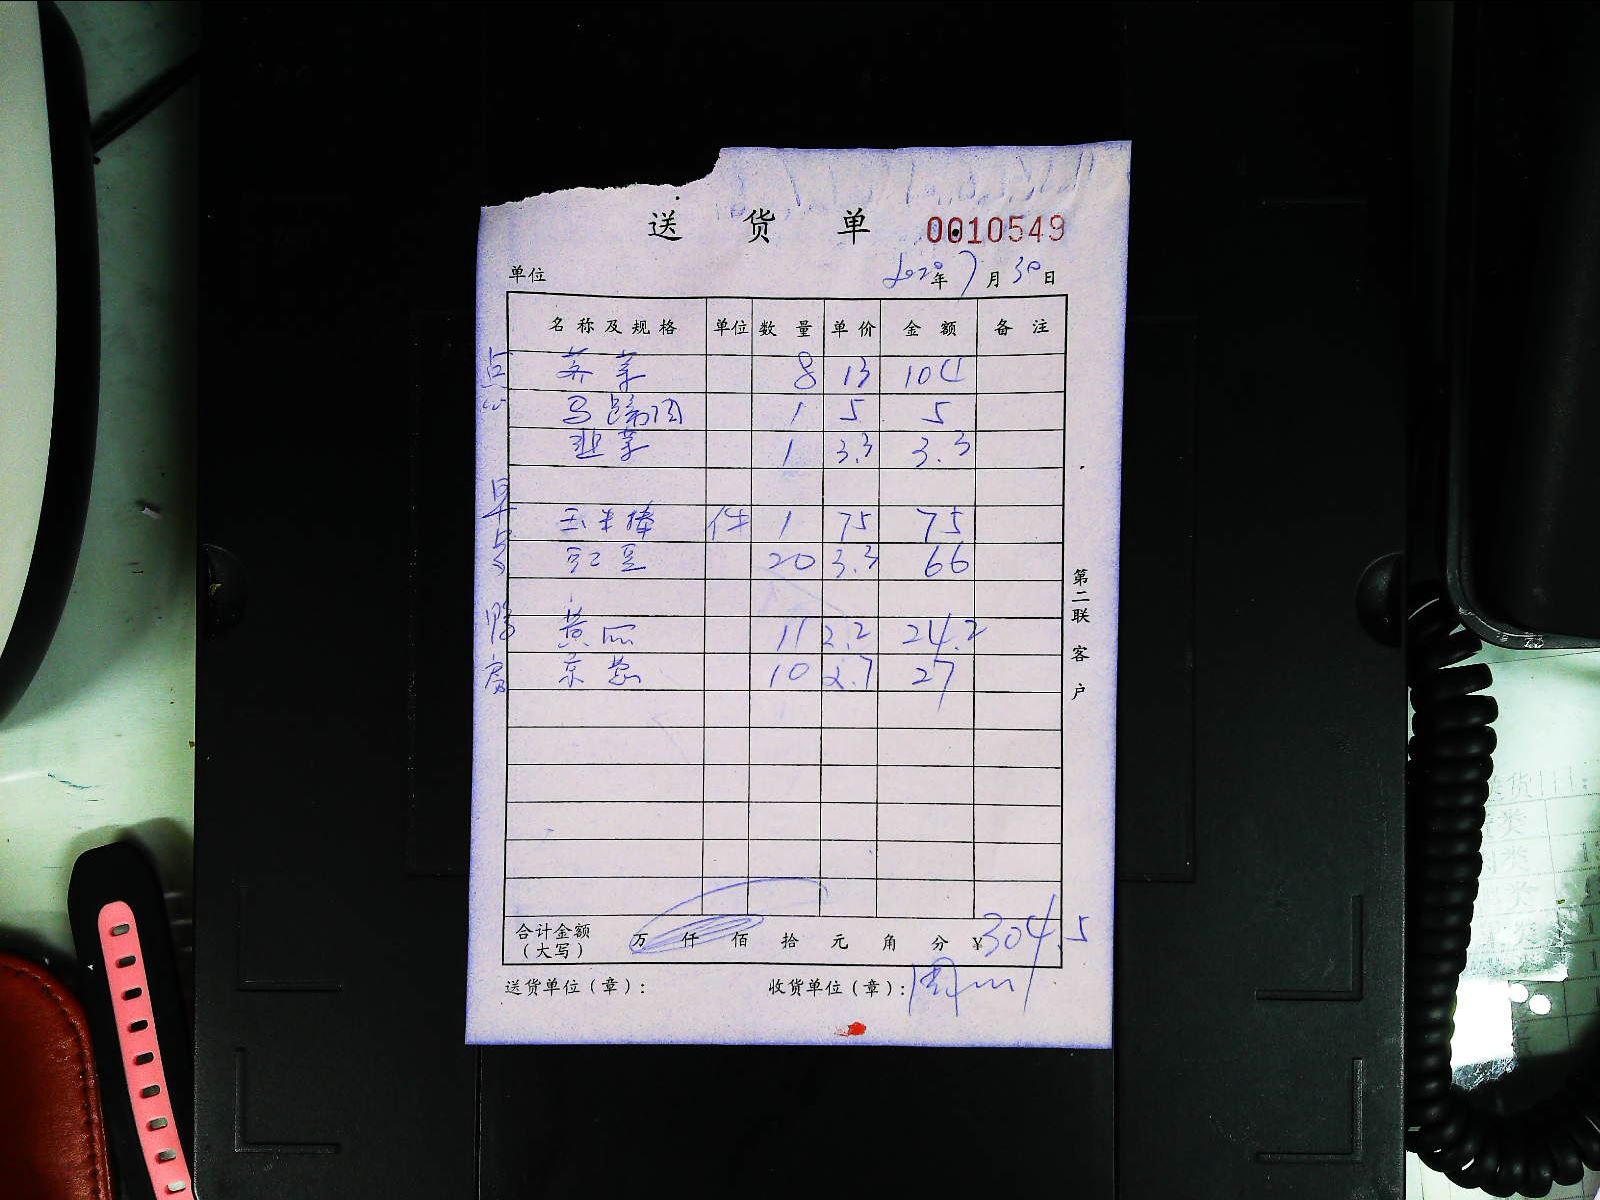 送货单 0010549
单位 2020年7月30日
名称及规格 单位 数量 单价 金额 备注
点心 荠菜 8 13 104
马蹄肉 1 5 5
韭菜 1 3.3 3.3
早点 玉米棒 件 1 75 75
豇豆 20 3.3 66
黄瓜 11 2.2 24.2
京葱 10 2.7 27
第二联 客户
合计金额（大写） 万 仟 佰 拾 元 角 分 ¥304.5
送货单位（章）： 收货单位（章）：